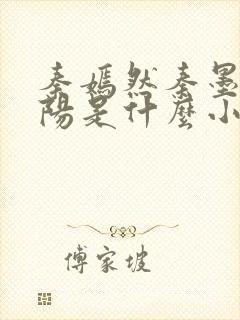 秦嫣然秦墨
陽是什麼小
傅家坡